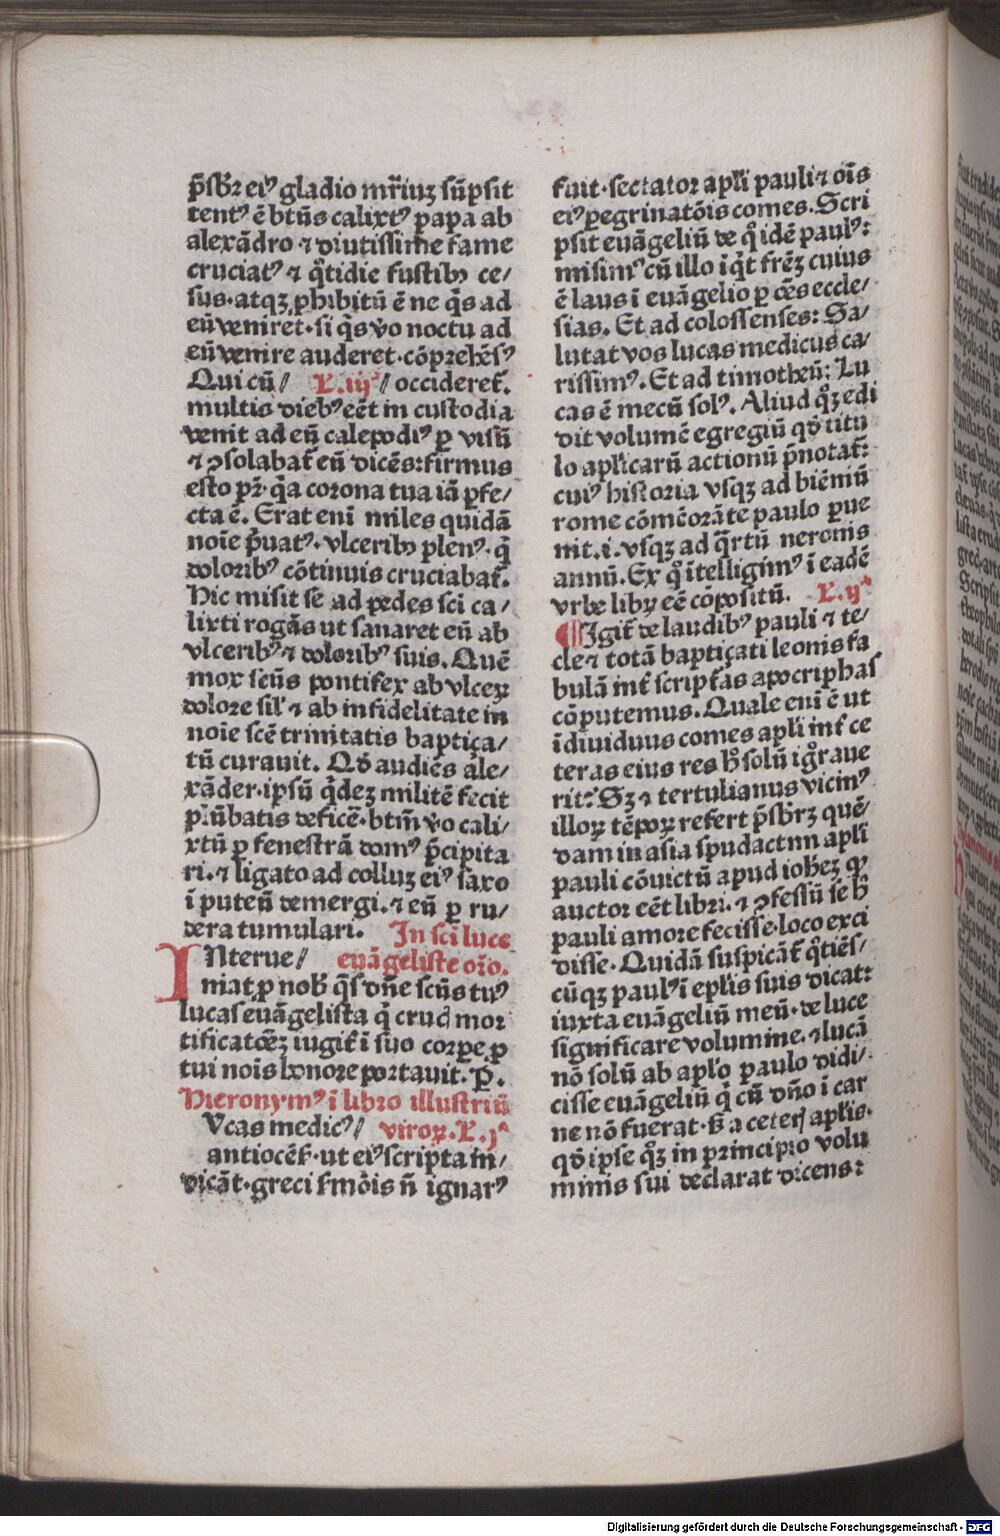 p̄sb̄r eiꝰ gladio mr̄iuꝫ sūpsit
tentꝰ ē btūs calixtꝰ papa ab
alexādro ⁊ diutissime fame
cruciatꝰ ⁊ q̄tidie fustibꝰ ce/
sus·atqꝫ ꝓhibitū ē ne q̄s ad
eū veniret·si q̄s v̄o noctu ad
eū venire auderet·cōprehēsꝰ
Qui cū/ L.iijᵃ / occideret̄.
multis diebꝰ eēt in custodia
venit ad eū calepodiꝰ ꝑ visū
⁊ ꝯsolabat̄ eū dicēs:firmus
esto pr̄·q̄a corona tua iā ꝑfe/
cta ē. Erat eni miles quidā
noīe p̄uatꝰ·vlceribꝰ plenꝰ·q̄
doloribꝰ cōtinuis cruciabat̄.
Hic misit se ad pedes sci ca/
lixti rogās ut sanaret eū ab
vlceribꝰ ⁊ doloribꝰ suis. Quē
mox senūs pontifex ab vlceꝝ
dolore sil̄ ⁊ ab infidelitate in
noīe scē trinitatis baptiça/
tū curauit. Qd̄ audiēs ale/
xāder·ipsū q̄deꝫ militē fecit
plūbatis deficē·btm̄ v̄o cali/
xtū ꝑ fenestrā domꝰ p̄cipita
ri.⁊ ligato ad colluꝫ eiꝰ saxo
ī puteū demergi.⁊ eū ꝑ ru/
dera tumulari. In sci luce
INterue/ euāgeliste or̄o.
niat ꝓ nob̄ q̄s dn̄e scūs tuꝰ
lucas euāgelista q̄ crucꝭ mor
tificatōeꝫ iugit̄ ī suo corpe ꝓ
tui nois honore portauit. P̄.
Hieronymꝰ ī libro illustriū
Vcas medicꝰ/ viroꝝ.L.jᵃ
antiocēs̄·ut eiꝰ scripta in/
dicāt·greci s̄mōis n̄ ignarꝰ
fuit·sectator apl̄i pauli ⁊ oīs
eiꝰ ꝑegrinatōis comes. Scri
psit euāgeliū de q̄ idē paulꝰ:
misimꝰ cū illo iq̄t frēꝫ cuius
ē laus ī euāgelio ꝑ oēs eccle/
sias. Et ad colossenses: Sa/
lutat vos lucas medicus ca/
rissimꝰ. Et ad timotheū: Lu
cas ē mecū solꝰ. Aliud qꝫ edi
dit volumē egregiū qd̄ titu
lo apl̄icarū actionū p̄notat̄:
cuiꝰ historia vsqꝫ ad biēniū
rome cōmc̄orāte paulo ꝑue
nit.i.vsqꝫ ad q̄rtū neronis
annū. Ex q̄ ītelligimꝰ ī eadē
vrbe libꝝ eē cōpositū. L.ijᵃ
¶Igit̄ de laudibꝰ pauli ⁊ te/
cle ⁊ totā baptiçati leonis fa
bulā int̄ script̄as apocriphas
cōputemus. Quale eni ē ut
īdiuiduus comes apl̄i int̄ ce
teras eius res h̄ solū igr̄aue
rit: Sꝫ ⁊ tertulianus vicinꝰ
illoꝝ tēpoꝝ refert p̄sb̄rꝫ quē/
dam in asia spudactnn apl̄i
pauli cōuictū apud ioheꝫ qꝫ
auctor eēt libri.⁊ ꝯfessū se h̄
pauli amore fecisse·loco exci
disse. Quidā suspicāt̄ q̄tiēs/
cūqꝫ paulꝰ ī epl̄is suis dicat:
iuxta euāgeliū meū·de luce
significare volumine.⁊ lucā
nō solū ab apl̄o paulo didi/
cisse euāgeliū q̄ cū dn̄o ī car
ne nō fuerat·s̄ a ceterꝭ apl̄is.
qd̄ ipse qꝫ in principio volu
minis sui declarat dicens:
Digitalisierung gefördert durch die Deutsche Forschungsgemeinschaft - DFG